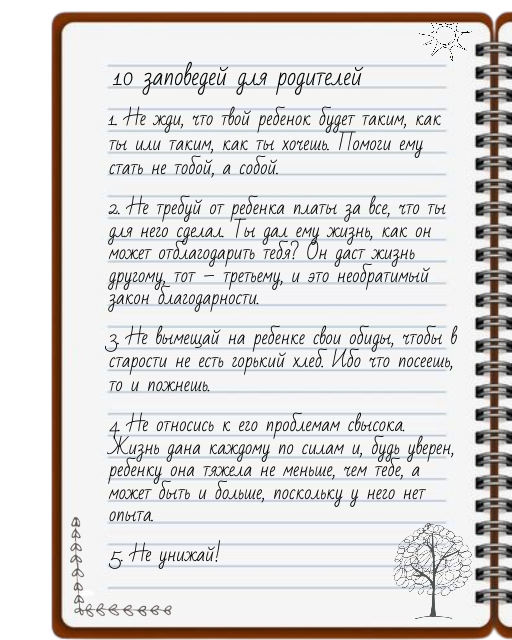 10 заповедей для родителей
1. Не жди, что твой ребенок будет таким, как
ты или таким, как ты хочешь. Помоги ему
стать не тобой, а собой.
2. Не требуй от ребенка платы за все, что ты
для него сделал. Ты дал ему жизнь, как он
может отблагодарить тебя? Он даст жизнь
другому, тот – третьему, и это необратимый
закон благодарности.
3. Не вымещай на ребенке свои обиды, чтобы в
старости не есть горький хлеб. Ибо что посеешь,
то и пожнешь.
4. Не относись к его проблемам свысока.
Жизнь дана каждому по силам и, будь уверен,
ребенку она тяжела не меньше, чем тебе, а
может быть и больше, поскольку у него нет
опыта.
5. Не унижай!